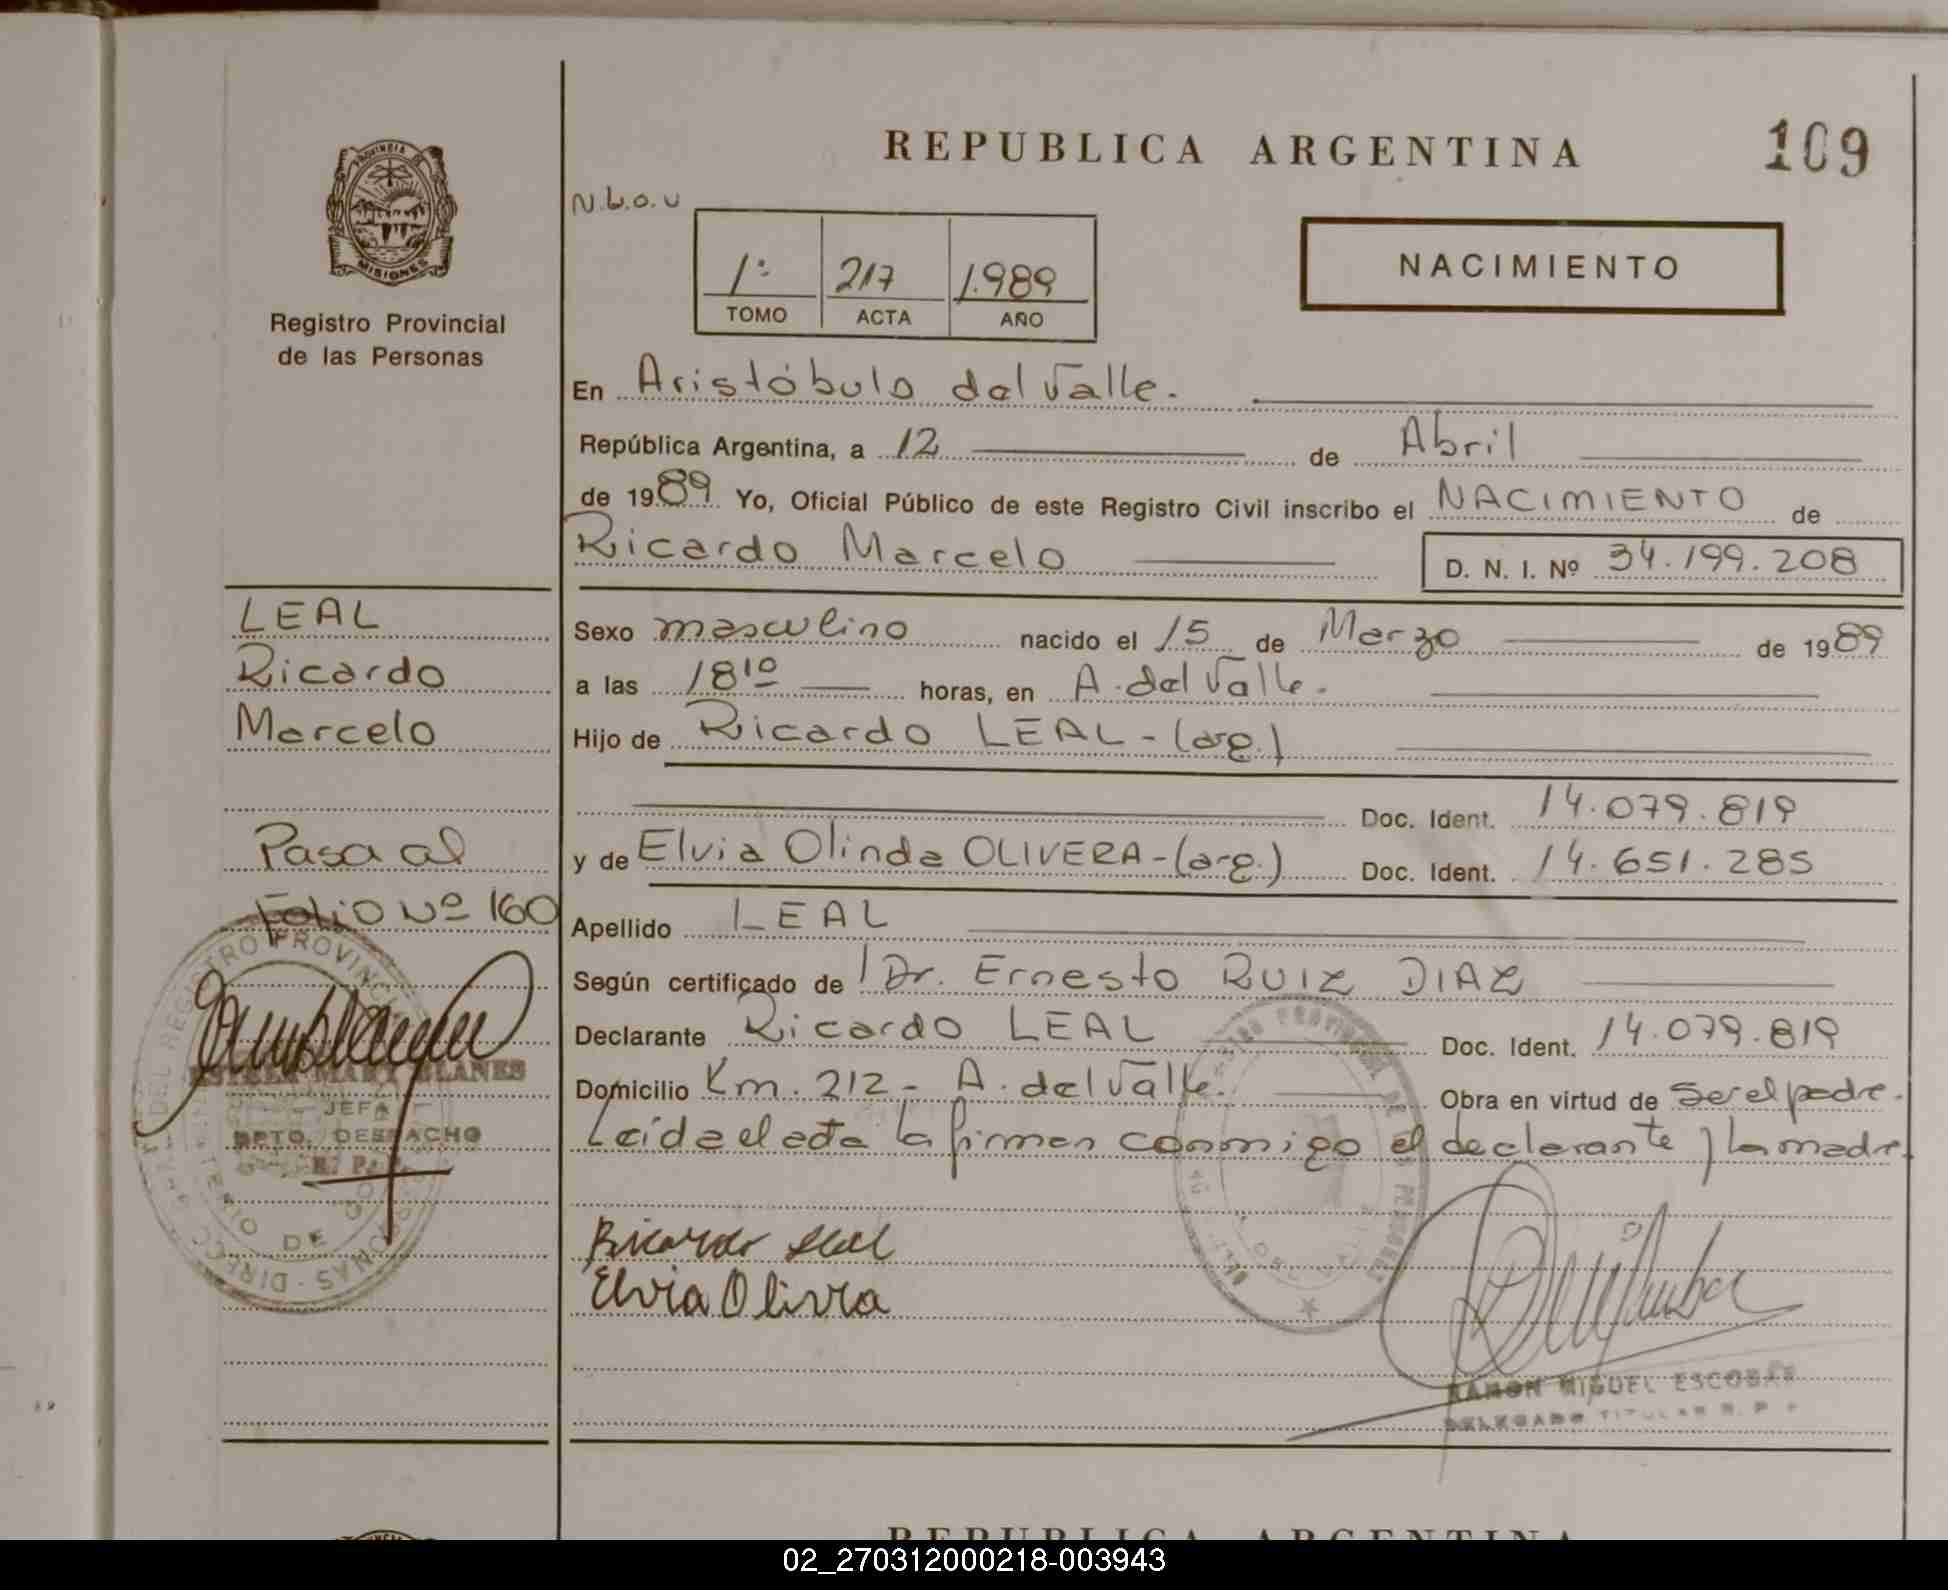 REPUBLICA ARGENTINA
109
PROVINCIA DE
MISIONES
Registro Provincial
de las Personas
N.b.o.u
1º 217 1.989
TOMO ACTA AÑO
NACIMIENTO
En Aristóbulo del Valle.
República Argentina, a 12 de Abril
de 1989 Yo, Oficial Público de este Registro Civil inscribo el NACIMIENTO de
Ricardo Marcelo D. N. I. Nº 34.199.208
LEAL
Ricardo
Marcelo
Pasa al
Folio Nº 160
Sexo masculino nacido el 15 de Marzo de 1989
a las 18¹⁰ horas, en A. del Valle.
Hijo de Ricardo LEAL - (arg.)
Doc. Ident. 14.079.819
y de Elvia Olinda OLIVERA - (arg.) Doc. Ident. 14.651.285
Apellido LEAL
Según certificado de Dr. Ernesto RUIZ DIAZ
Declarante Ricardo LEAL Doc. Ident. 14.079.819
Domicilio Km. 212 - A. del Valle. Obra en virtud de ser el padre.
Leida el acta la firman conmigo el declarante y la madre.
Ricardo Leal
Elvia Olivra
RAMON MIGUEL ESCOBAR
DELEGADO TITULAR R. P.
ESTELA MARY BLANES
JEFA
DPTO. DESPACHO
DEL REGISTRO PROVINCIAL
REPUBLICA ARGENTINA
02_270312000218-003943